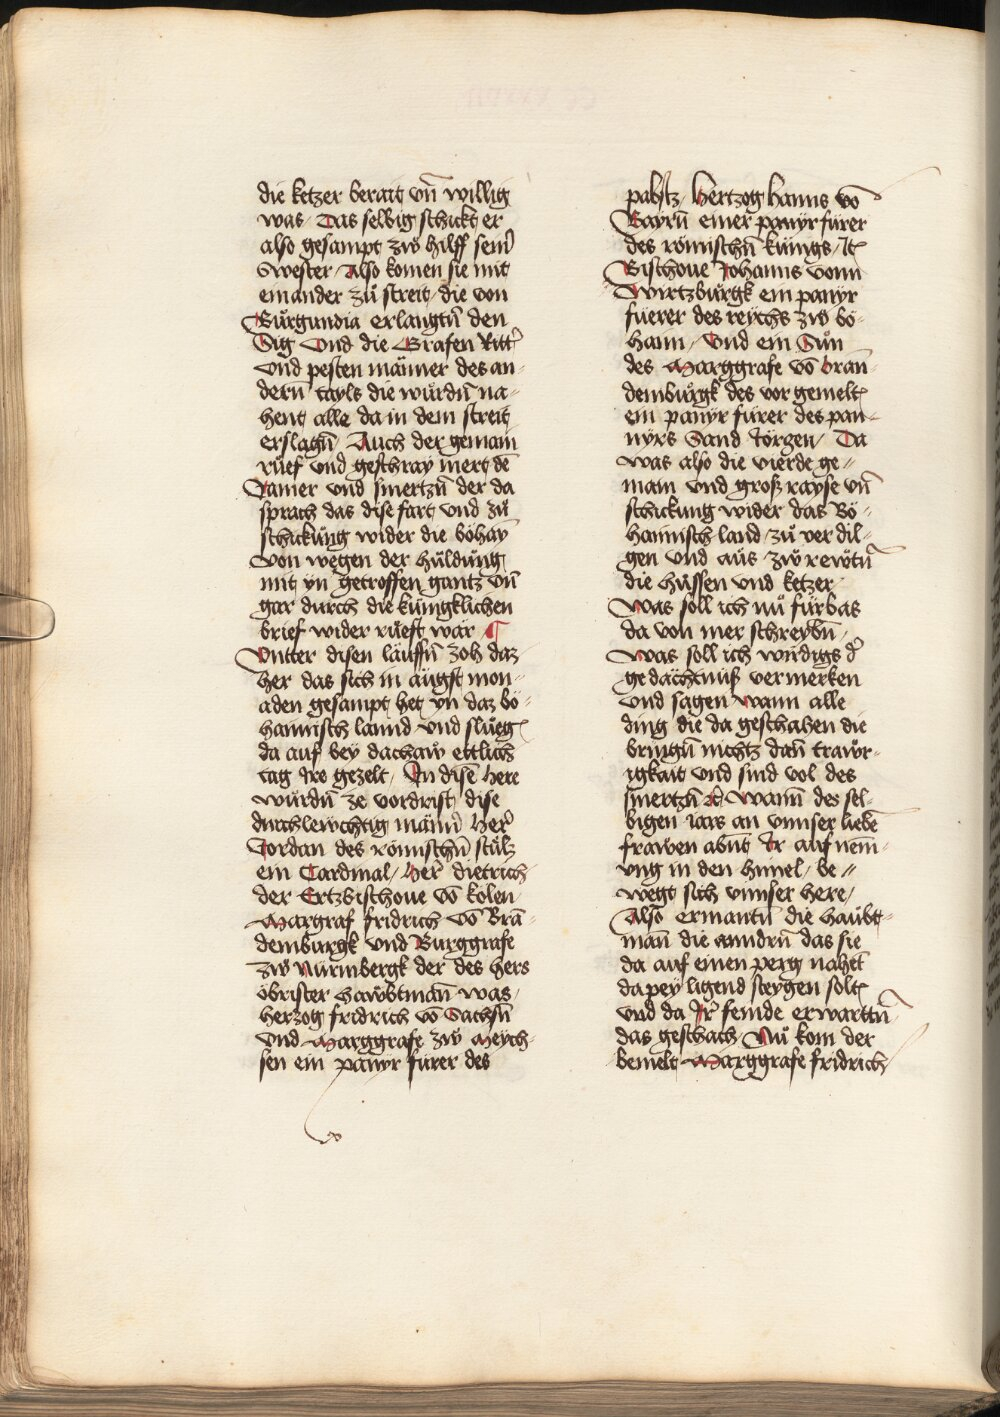 die ketzer berait vn̄ willig
was / Das selbig schickt er
also gesampt zẘ hilff sein̄
Swester / Also komen sie mit
einander zů streit / die von
Bůrgundia erlangtn̄ den
Sig Vnd die Grafen Ritt͛
vnd pesten männer des an-
dern̄ tayls die wůrdn̄ na-
hent alle da in dem streit
erslagn̄ / Auch der gemain
růef vnd geschray mert dē
Jamer vnd smertzn̄ der da
sprach das dise fart vnd zů
schickůng wider die böhan̄
von wegen der hůldůng
mit yn getroffen gantz vn̄
gar durch die künigklichen
brief wider růeft wär ¶
Vntter disen läuffn̄ zoh daz
her das sich in aůgst mon-
aden gesampt het yn daz bö-
haimisch lannd vnd slůeg
da auf bey dachaw ettlich
tag ire gezelt / In disē here
wůrdn̄ ze vordrist dise
durchlewchtig männ͛ Her͛
Jordan des römischn̄ stůls
ein Cardinal / Her͛ dietrich
der Ertzbischoue vō kolen
Margraf fridrich vō Brā-
demburgk vnd Burggrafe
zẘ Nürmbergk der des hers
öbrister hawbtman̄ was /
hertzog fridrich vō Sachsn̄
vnd Marggrafe zẘ Meych-
sen ein panyr fürer des
pabstz / Hertzog hanns vō
Bayrn̄ einer panyr fürer
des römischn̄ künigs / It̄
Bischoue Johanns vonn
Wirtzbůrgk ein panyr
fuerer des reychs zẘ bö-
hann / Vnd ein Sůn
des Marggrafe vō bran-
demburgk des vor gemelt̄
ein panyr fürer des pan-
nyrs Sand Jörgen / Da
was also die vierde ge-
main vnd groß rayse vn̄
schickung wider das Bö-
haimisch land / zů ver dil-
gen vnd aůs zẘ rewtn̄
die hůssen vnd ketzer /
Was soll ich nů fürbas
da von mer schreybn̄ /
Was soll ich wirdigs d͛
gedächtnüß vermerken
vnd sagen wann alle
ding die da geschahen die
bringn̄ nichtz dan̄ trawr-
igkait vnd sind vol des
smertzn̄ ꝛc̄ Wann̄ des sel-
bigen iars an vnnser liebē
frawen abn̄t Ir auf nem-
vng in den himel / be-
wegt sich vnnser here /
Also ermantn̄ die haůbt-
man̄ die anndrn̄ das sie
da auf einen perg nahet
dapey ligend steygen solt̄
vnd da Ir͛ feinde erwarttn̄
das geschach / Nů kom der
bemelt Marggrafe fridrich